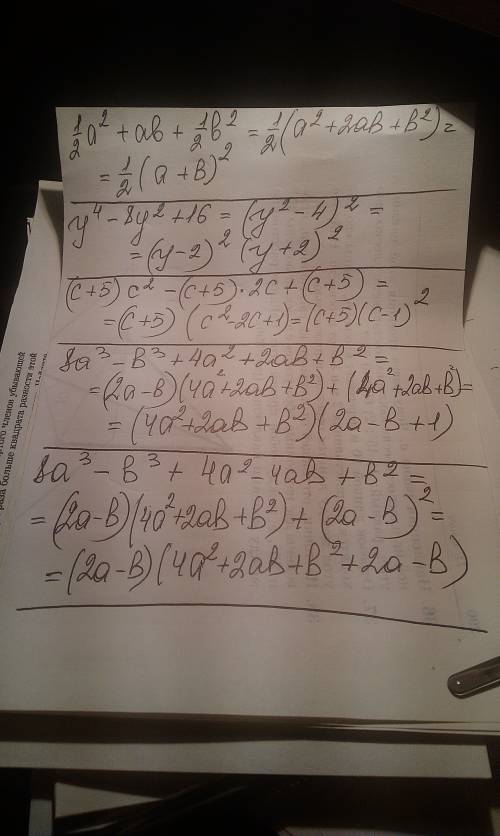 1/2 a² + ab + 1/2 b² = 1/2 (a² + 2ab + b²) =
= 1/2 (a + b)²
y⁴ - 8y² + 16 = (y² - 4)² =
= (y-2)² (y+2)²
(c+5) c² - (c+5)·2c + (c+5) =
= (c+5) (c² - 2c + 1) = (c+5)(c-1)²
8a³ - b³ + 4a² + 2ab + b² =
= (2a-b)(4a² + 2ab + b²) + (4a² + 2ab + b²) =
= (4a² + 2ab + b²)(2a - b + 1)
8a³ - b³ + 4a² - 4ab + b² =
= (2a-b)(4a² + 2ab + b²) + (2a - b)² =
= (2a-b)(4a² + 2ab + b² + 2a - b)
ртого членов убывающей
раза больше квадрата разности этой